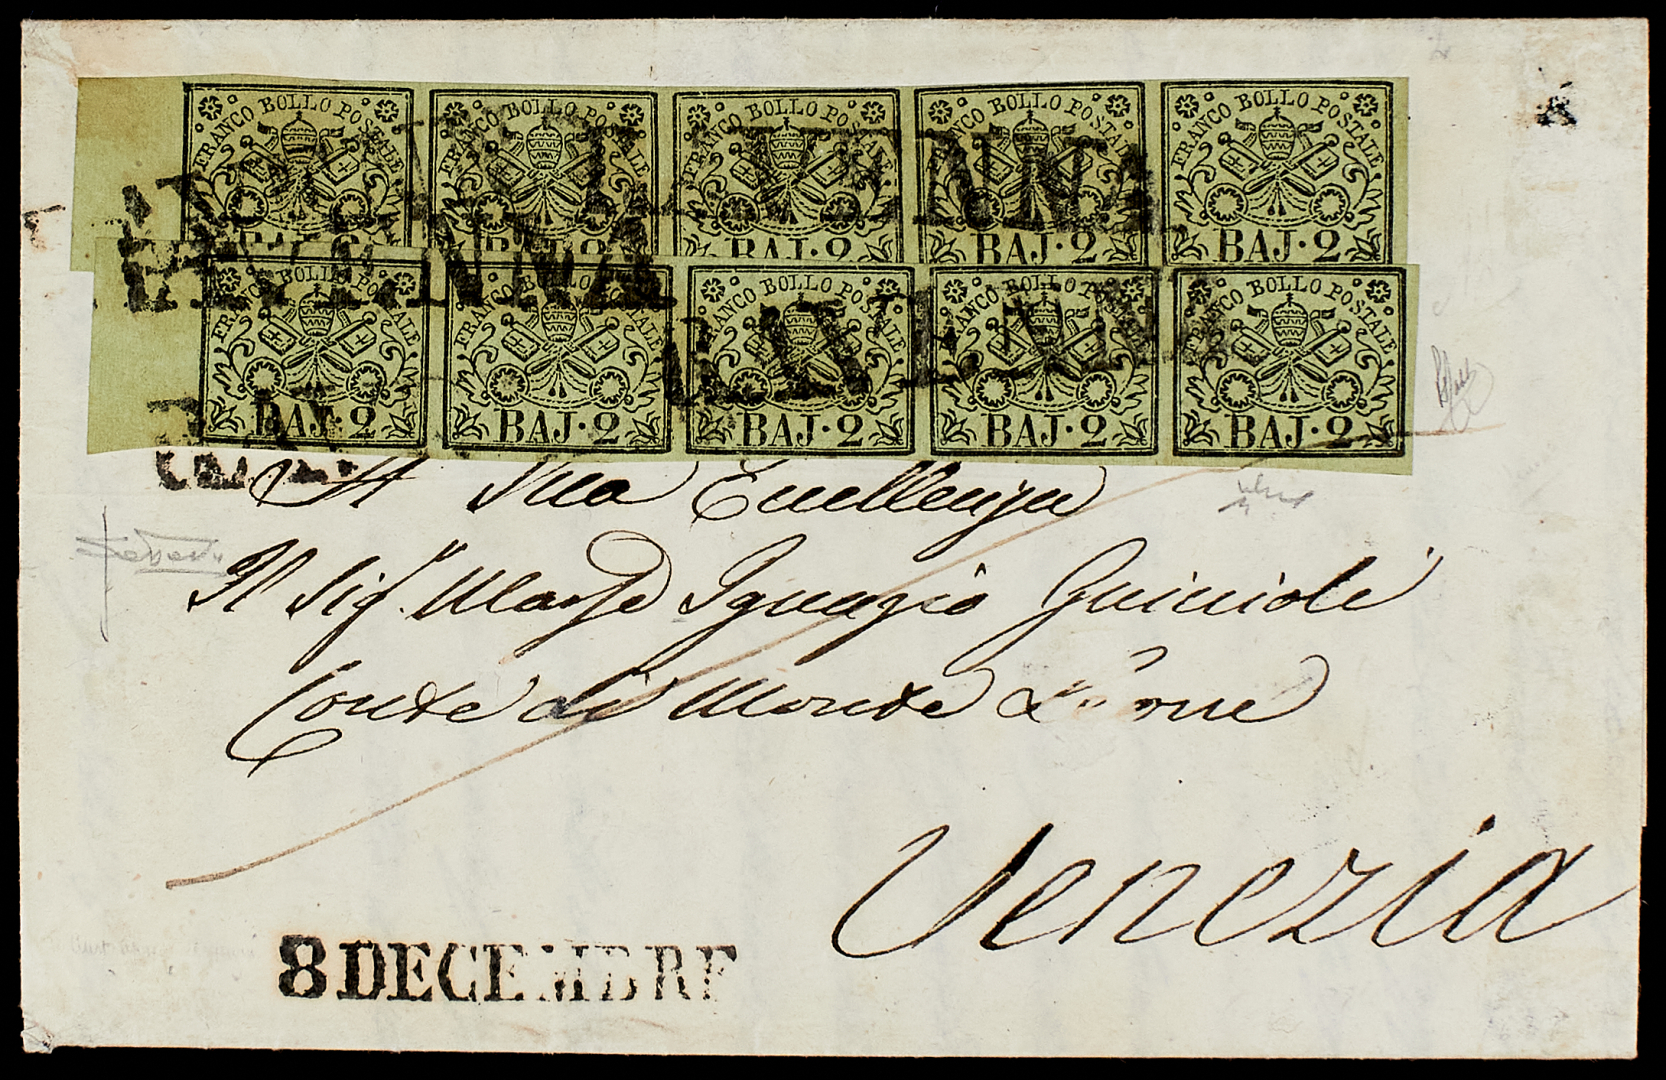 FRANCO BOLLO POSTALE FRANCO BOLLO POSTALE FRANCO BOLLO POSTALE FRANCO BOLLO POSTALE FRANCO BOLLO POSTALE
BAJ·2 BAJ·2 BAJ·2 BAJ·2 BAJ·2
FRANCO BOLLO POSTALE FRANCO BOLLO POSTALE FRANCO BOLLO POSTALE FRANCO BOLLO POSTALE FRANCO BOLLO POSTALE
BAJ·2 BAJ·2 BAJ·2 BAJ·2 BAJ·2
RAVENNA
A Sua Eccellenza
Il Sig.r March Ignazio Guiccioli
Conte di Monte
Venezia
8 DECEMBRE